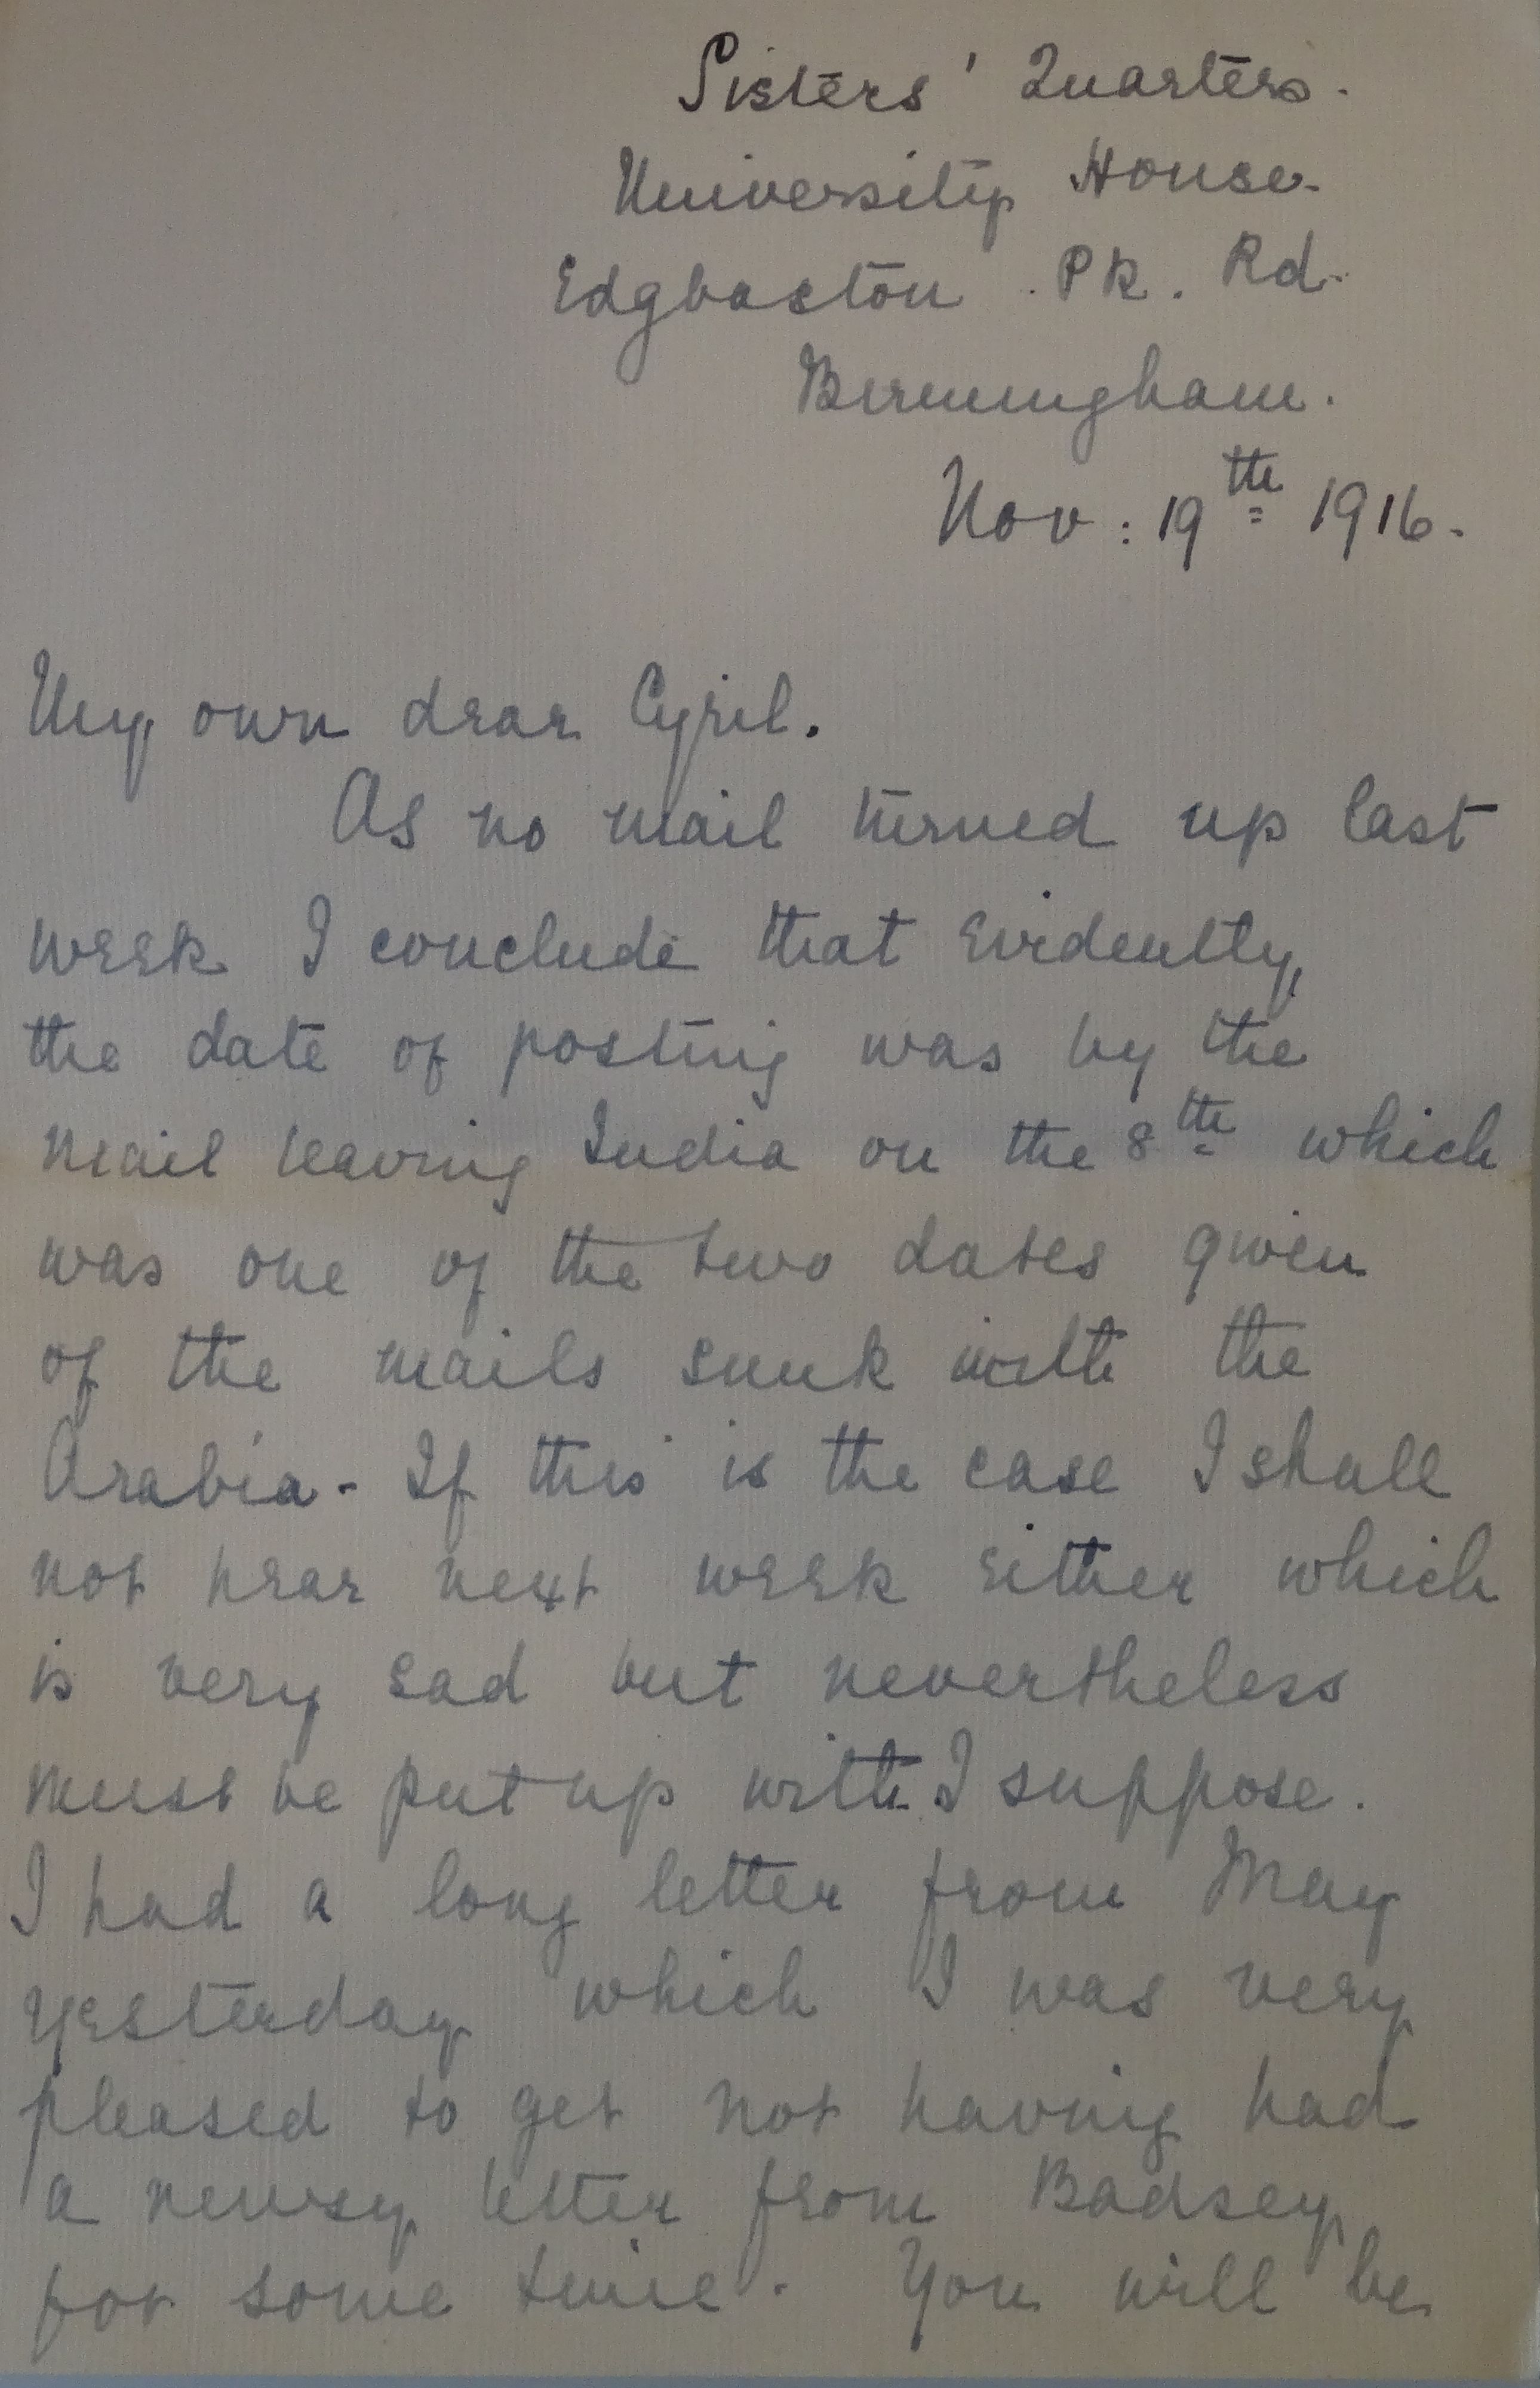 Sisters' Quarters.
University House.
Edgbaston Pk. Rd.
Birmingham.
Nov: 19th 1916.
My own dear Cyril.
As no mail turned up last
week I conclude that evidently,
the date of posting was by the
mail leaving India on the 8th which
was one of the two dates given
of the mails sunk with the
Arabia - If this is the case I shall
not hear next week either which
is very sad but nevertheless
must be put up with I suppose.
I had a long letter from May
yesterday which I was very
pleased to get not having had
a newsy letter from Badsey
for some time. You will be